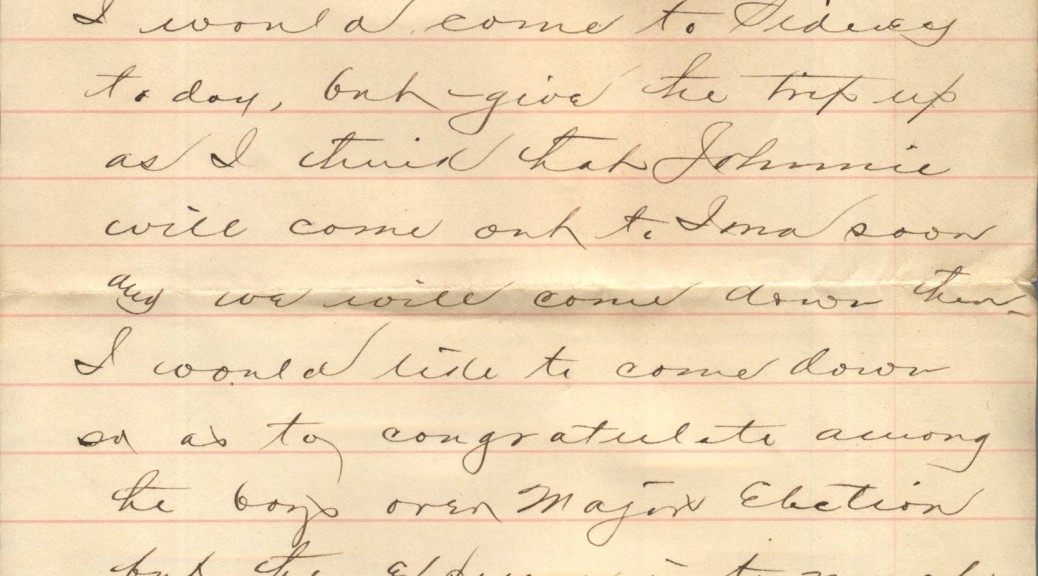 I would come to Sidney
today, but give the trip up
as I think that Johnnie
will come out to Ima soon
and we will come down then
I would like to come down
so as to congratulate among
the boys over Major Election
but the